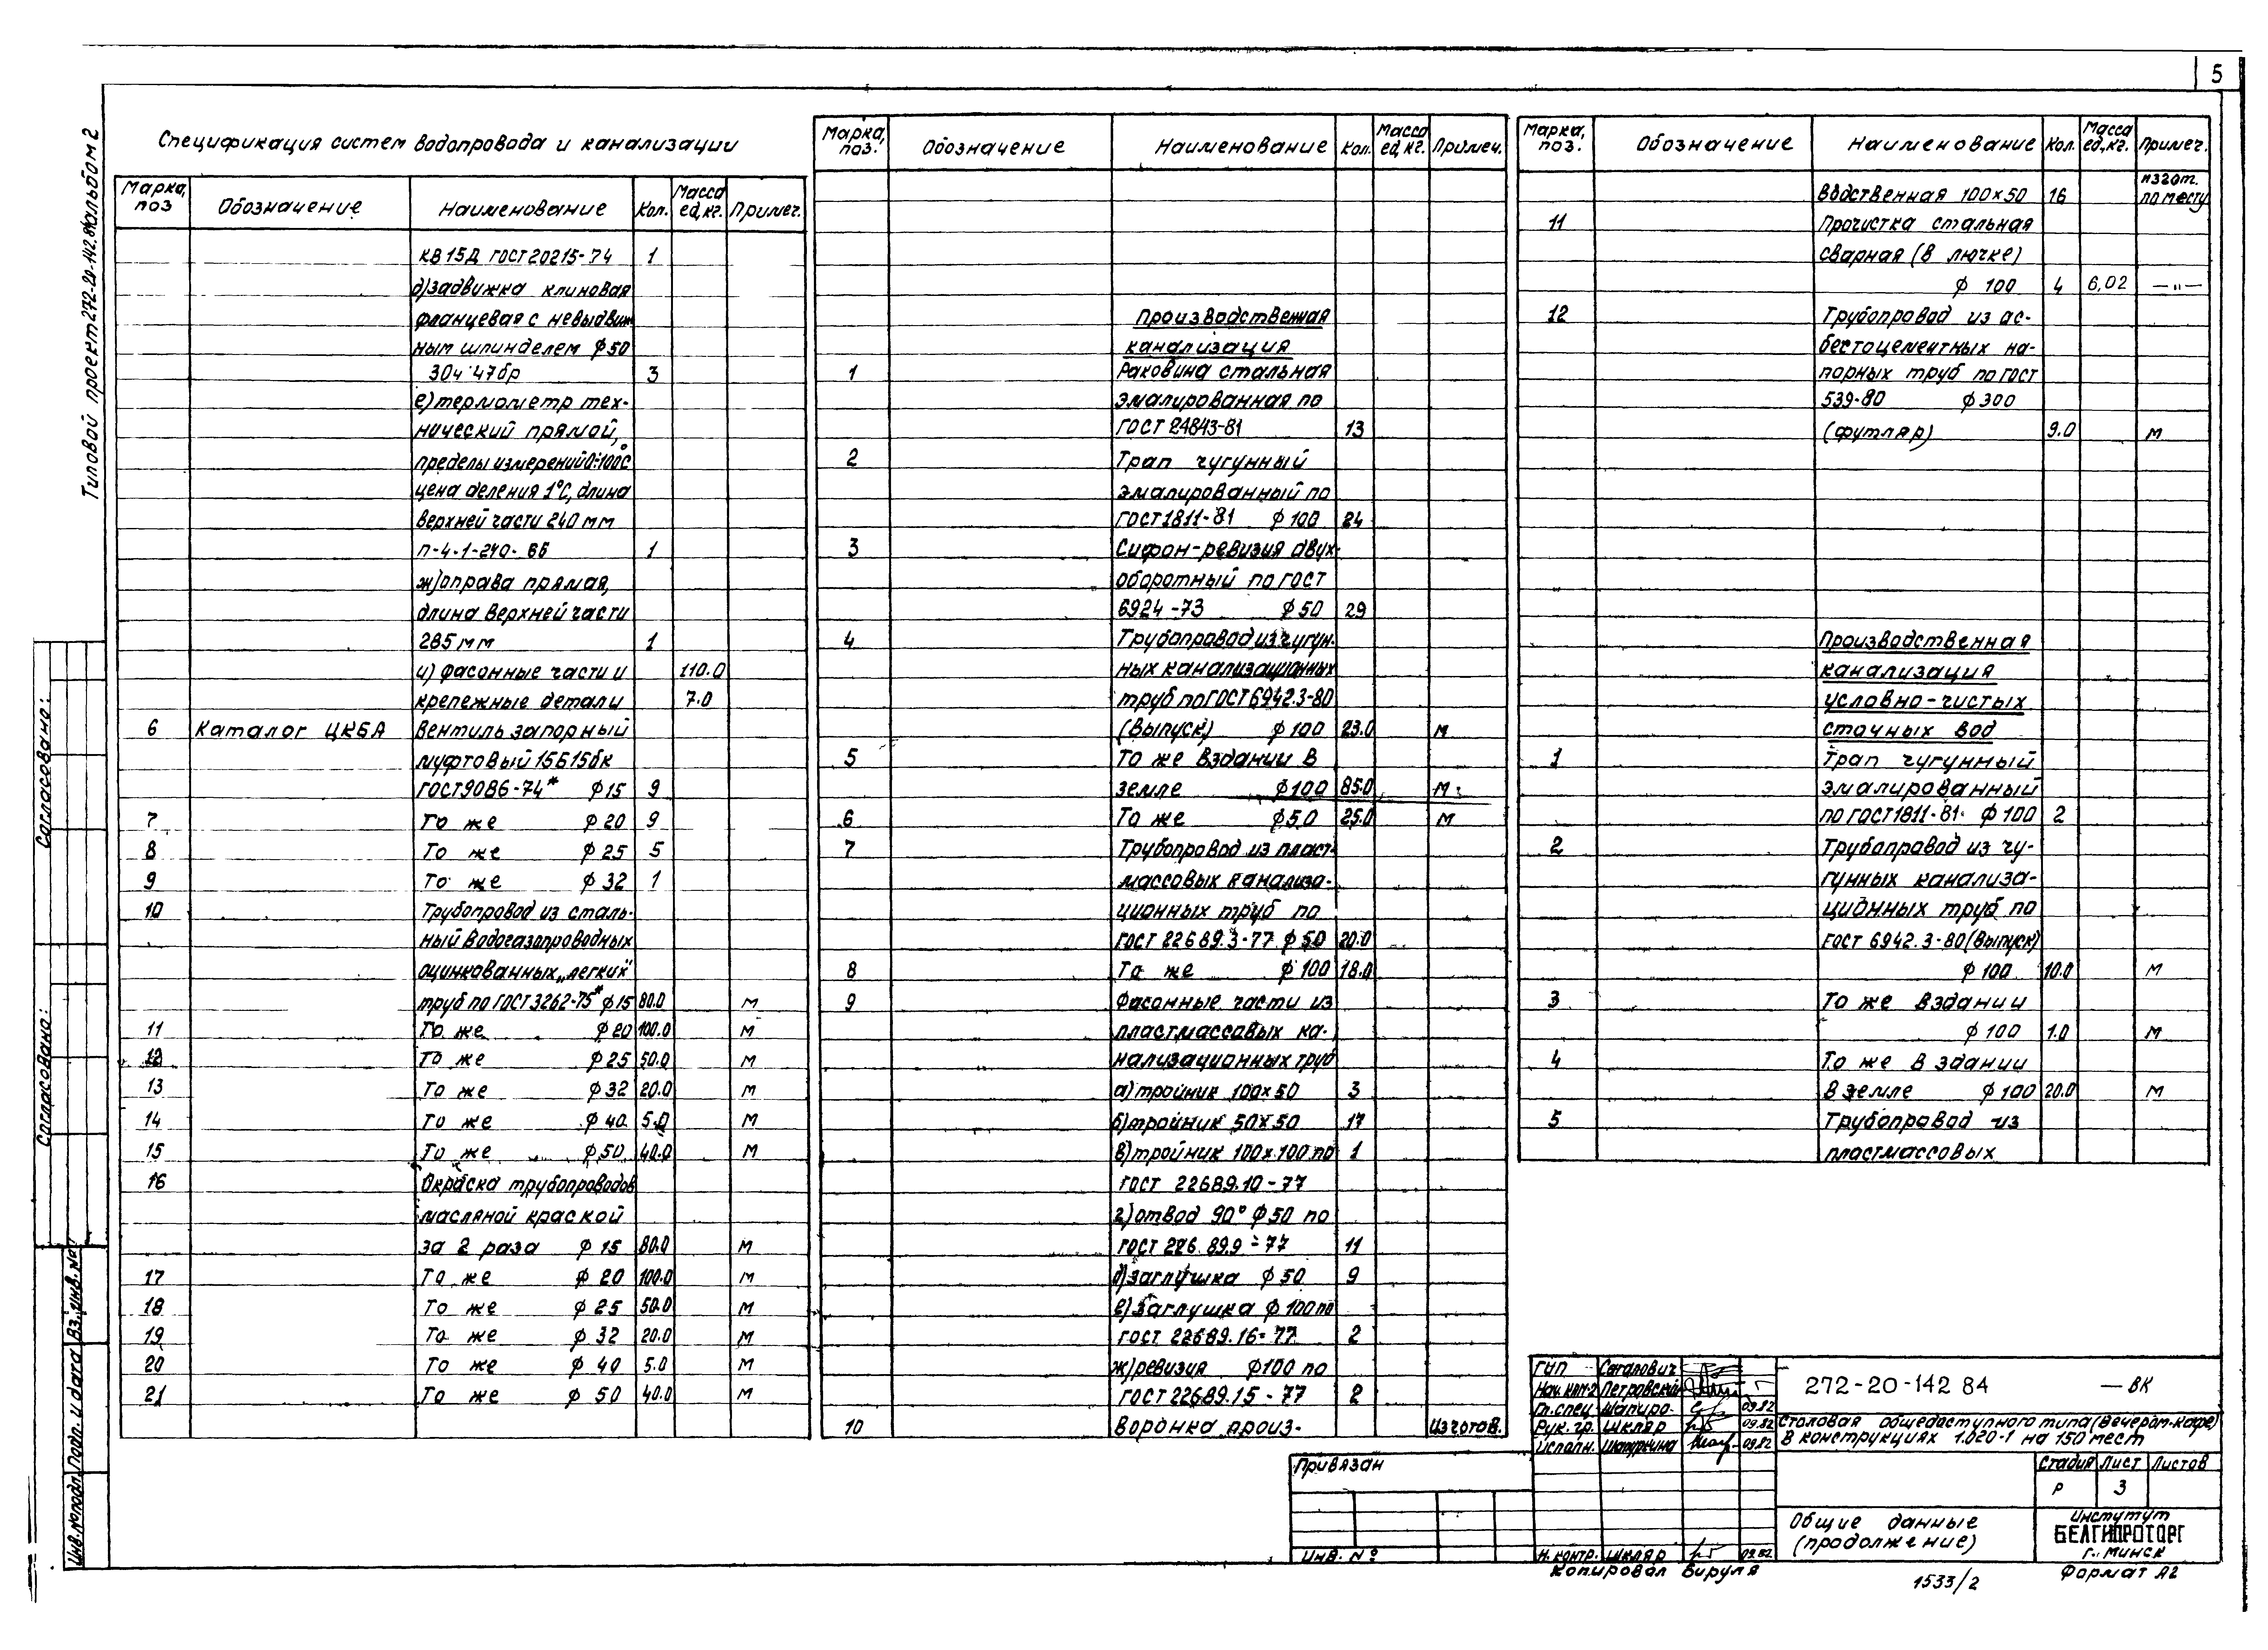 5
Типовой проект 272-20-142.84 Альбом 2
Спецификация систем водопровода и канализации
Марка, поз Обозначение Наименование Кол. Масса ед,кг. Примеч.
КВ 15Д ГОСТ 20215-74 1
д)задвижка клиновая
фланцевая с невыдвиж
ным шпинделем ф50
30ч 47бр 3
е)термометр тех-
нический прямой,
пределы измерений 0÷100°С
цена деления 1°С, длина
верхней части 240 мм
п-4-1-240-66 1
ж)оправа прямая,
длина верхней части
285 мм 1
и) фасонные части и 110.0
крепежные детали 7.0
6 Каталог ЦКБА Вентиль запорный
муфтовый 15Б15бк
ГОСТ 9086-74* ф15 9
7 То же ф 20 9
8 То же ф 25 5
9 То же ф 32 1
10 Трубопровод из сталь-
ный водогазопроводных
оцинкованных „легких"
труб по ГОСТ 3262-75* ф15 80.0 м
11 То же ф20 100.0 м
12 То же ф25 50.0 м
13 То же ф32 20.0 м
14 То же ф40 5.0 м
15 То же ф50 40.0 м
16 Окраска трубопроводов
масляной краской
за 2 раза ф 15 80.0 м
17 То же ф 20 100.0 м
18 То же ф 25 50.0 м
19 То же ф 32 20.0 м
20 То же ф 40 5.0 м
21 То же ф 50 40.0 м
Марка, поз. Обозначение Наименование Кол. Масса ед,кг. Примеч.
Производственная
канализация
1 Раковина стальная
эмалированная по
ГОСТ 24843-81 13
2 Трап чугунный
эмалированный по
ГОСТ 1811-81 ф 100 24
3 Сифон-ревизия двух-
оборотный по ГОСТ
6924-73 ф 50 29
4 Трубопровод из чугун-
ных канализационных
труб по ГОСТ 6942.3-80
(выпуск) ф 100 23.0 м
5 То же в здании в
земле ф100 85.0 м
6 То же ф50 25.0 м
7 Трубопровод из пласт-
массовых канализа-
ционных труб по
ГОСТ 22689.3-77 ф 50 20.0
8 То же ф 100 18.0
9 Фасонные части из
пластмассовых ка-
нализационных труб
а)тройник 100х50 3
б)тройник 50х50 17
в)тройник 100х100 по 1
ГОСТ 22689.10-77
г)отвод 90° ф50 по
ГОСТ 226.89.9-77 11
д)заглушка ф 50 9
е)заглушка ф 100 по
ГОСТ 22689.16-77 2
ж)ревизия ф100 по
ГОСТ 22689.15-77 2
10 Воронка произ- Изготов.
Марка, поз. Обозначение Наименование Кол. Масса ед,кг. Примеч.
водственная 100х50 16 изгот. по месту
11 Прочистка стальная
сварная (в лючке)
ф 100 4 6,02 —"—
12 Трубопровод из ас-
бестоцементных на-
порных труб по ГОСТ
539-80 ф300
(футляр) 9.0 м
Производственная
канализация
условно-чистых
сточных вод
1 Трап чугунный
эмалированный
по ГОСТ 1811-81 ф 100 2
2 Трубопровод из чу-
гунных канализа-
ционных труб по
ГОСТ 6942.3-80(выпуск)
ф 100 10.0 м
3 То же в здании
ф 100 1.0 м
4 То же в здании
в земле ф 100 20.0 м
5 Трубопровод из
пластмассовых
Согласовано:
Согласовано:
Инв.№подл. Подп. и дата Вз. инв. №
ГИП Сегалович
Нач. КПМ-2 Петровский
Гл.спец. Шапиро 09.82
Рук. гр. Шкляр 09.82
Исполн. 09.82
Н.контр. Шкляр 09.82
Привязан
Инв. №
272-20-142 84 — ВК
Столовая общедоступного типа (вечером-кафе)
в конструкциях 1.020-1 на 150 мест
Стадия Лист Листов
Р 3
Общие данные
(продолжение)
Институт
БЕЛГИПРОТОРГ
г. Минск
Копировал Вируля
1533/2
Формат А2